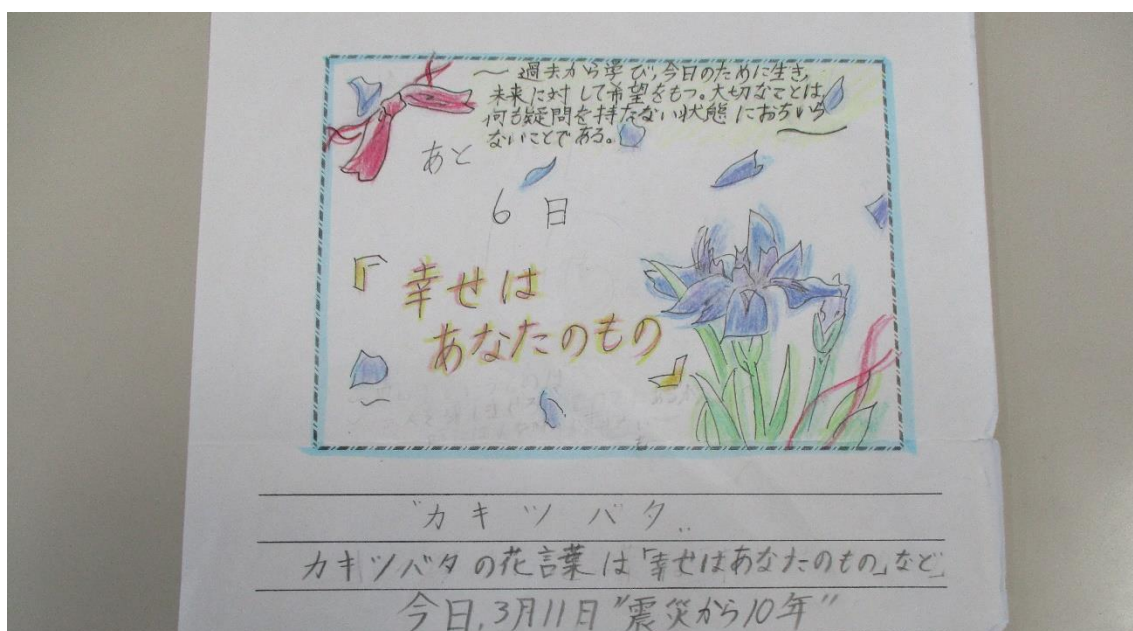 〜過去から学び,今日のために生き,
未来に対して希望をもつ。大切なことは,
何も疑問を持たない状態におちいら
ないことである。〜
あと
6日
『幸せは
あなたのもの』
"カキツバタ"
カキツバタの花言葉は「幸せはあなたのもの」など
今日,3月11日"震災から10年"